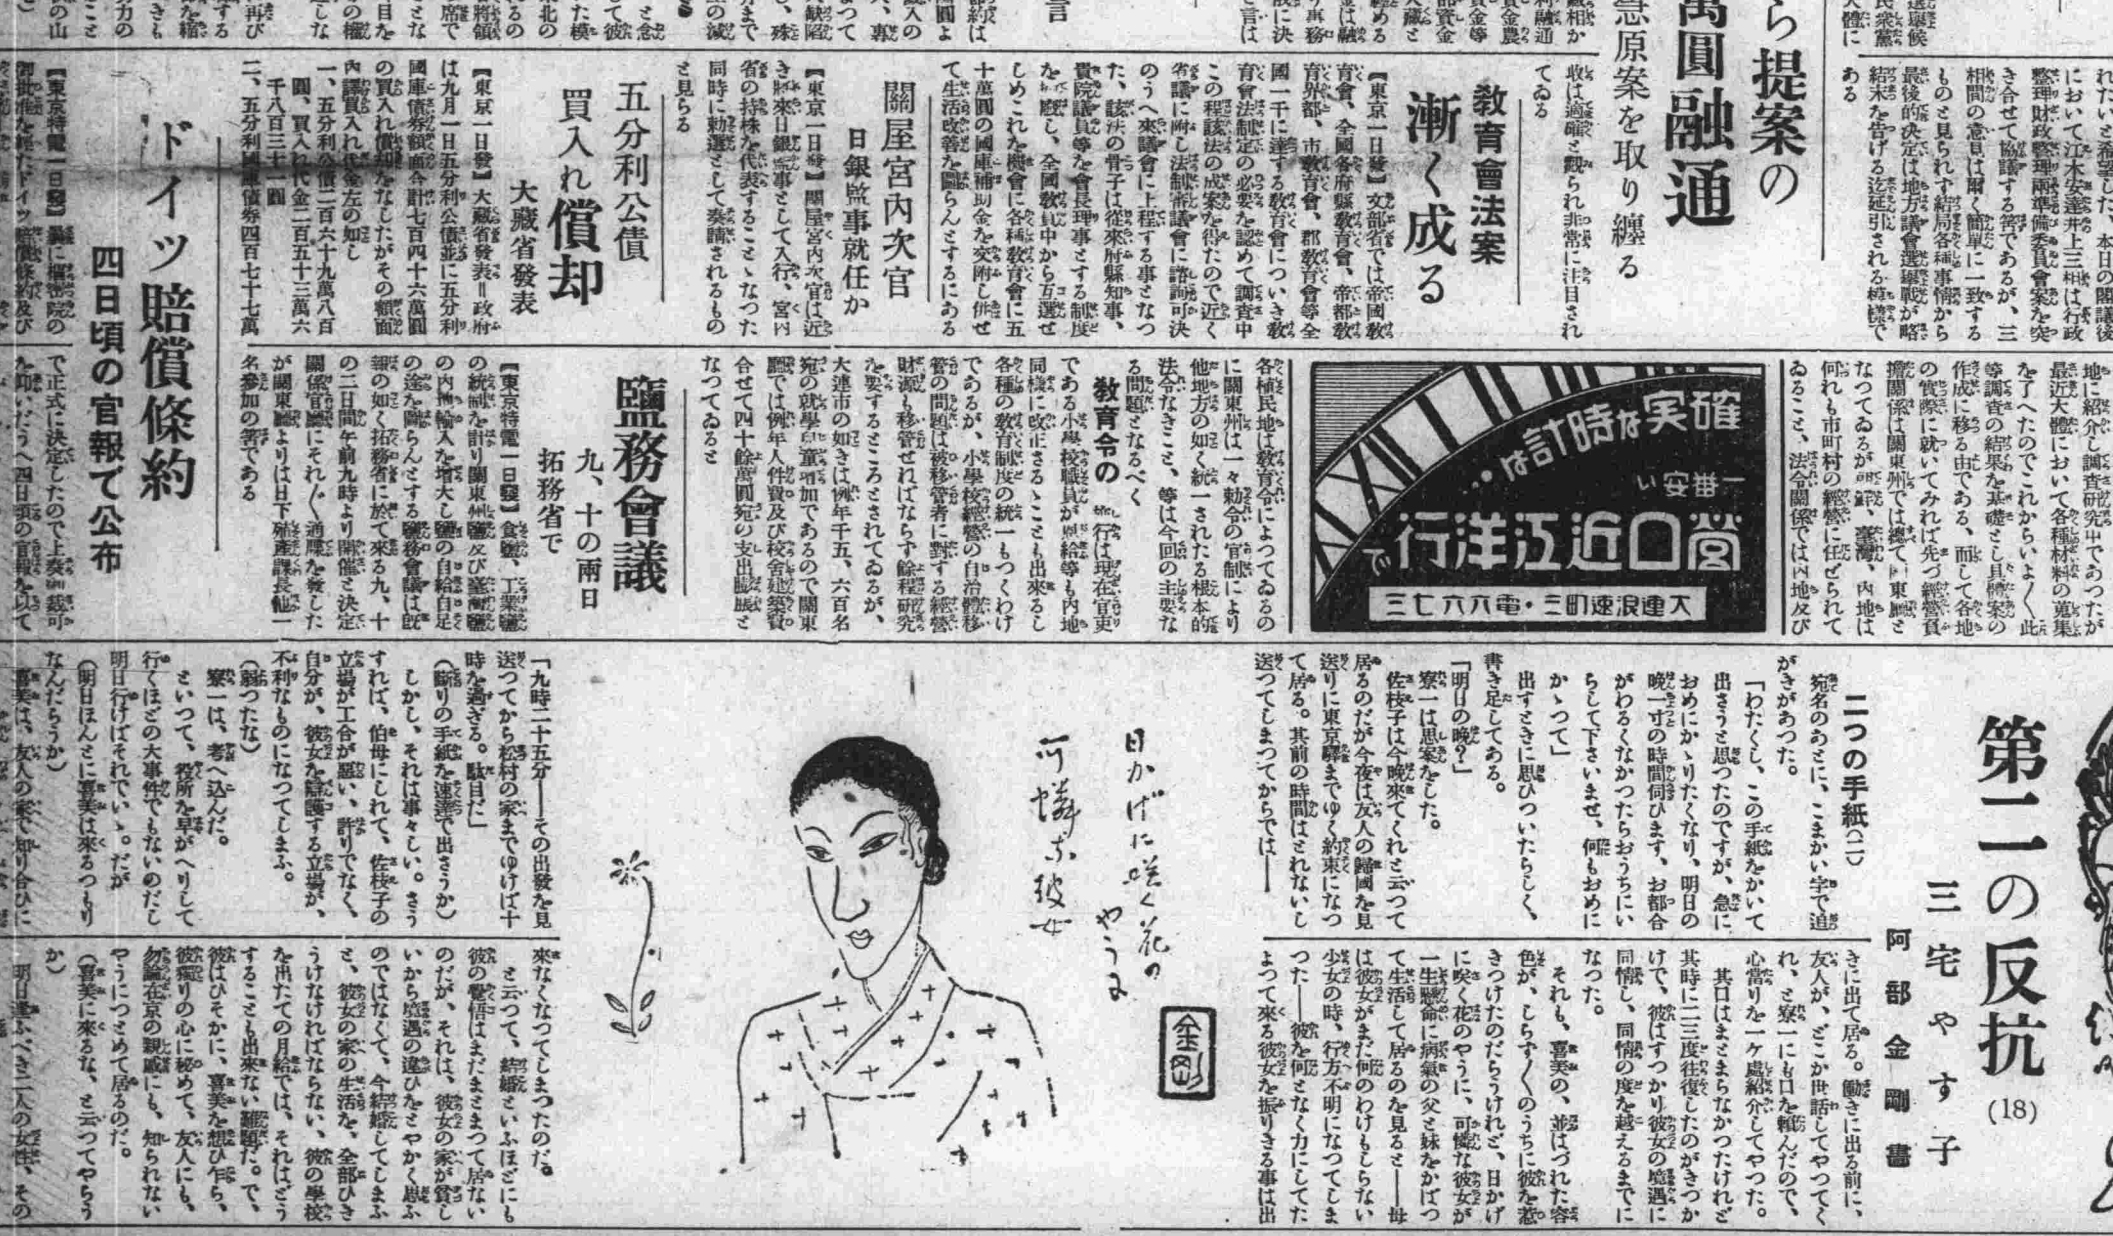 ら提案の
萬圓融通
急原案を取り纏る
れたいと希望した、本日の閣議後
において江木安達井上三相は行政
整理財政整理兩準備委員會案を突
き合せて協議する筈であるが、三
相間の意見は爾く簡單に一致する
ものと見られず結局各種事情から
最後的決定は地方議會選擧戰が略
結末を告げる迄延引される模樣で
ある
收は適確と觀られ非常に注目され
てゐる
教育會法案
漸く成る
【東京一日發】文部省では帝國教
育會、全國各府縣教育會、帝都教
育界都、市教育會、郡教育會等全
國一千に達する教育會につき教
育會法制定の必要を認めて調査中
この程該法の成案を得たので近く
省議に附し法制審議會に諮詢可決
のうへ來議會に上程する事となつ
た、該法の骨子は從來府縣知事、
貴院議員等を會長理事とする制度
を廢し、全國教員中から互選せ
しめこれを機會に各種教育會に五
十萬圓の國庫補助金を交附し併せ
て生活改善を圖らんとするにある
關屋宮内次官
日銀監事就任か
【東京一日發】關屋宮内次官は近
き將來日銀監事として入行、宮内
省の持株を代表することゝなつた
同時に勅選として奏請されるもの
と見らる
五分利公債
買入れ償却
大藏省發表
【東京一日發】大藏省發表＝政府
は九月一日五分利公債並に五分利
國庫債券額面合計七百四十六萬圓
の買入れ償却をなしたがその額面
内譯買入れ代金左の如し
一、五分利公債二百六十九萬八百
圓、買入れ代金二百五十三萬六
千八百三十一圓
二、五分利國庫債券四百七十七萬
ドイツ賠償條約
四日頃の官報で公布
【東京特電一日發】曩に樞密院の
御批准を經たドイツ賠償條約及び
で正式に決定したので上奏御裁可
を仰いだうへ四日頃の官報を以て
地に紹介し調査研究中であつたが
最近大體において各種材料の蒐集
を了へたのでこれからいよ〱此
等調査の結果を基礎とし具體案の
作成に移る由である、而して各地
の實際に就いてみれば先づ經營負
擔關係は關東州では總て關東廳と
なつてゐるが朝鮮、臺灣、内地は
何れも市町村の經營に任ぜられて
ゐること、法令關係では内地及び
確実な時計は…
一番安い
営口近江洋行で
大連浪速町三・電六六七三
各植民地は教育令によつてゐるの
に關東州は一々勅令の官制により
他地方の如く統一されたる根本的
法令なきこと、等は今回の主要な
る問題となるべく
教育令の 施行は現在官吏
である小學校職員が恩給等も内地
同樣に改正さるゝことも出來るし
各種の教育制度の統一もつくわけ
であるが、小學校經營の自治體移
管の問題は被移管者に對する經營
財源も移管せねばならず餘程研究
を要するところとされてゐるが、
大連市の如きは例年千五、六百名
宛の就學兒童增加であるので關東
廳では例年人件費及び校舍建築費
合せて四十餘萬圓宛の支出膨脹と
なつてゐると
鹽務會議
九、十の兩日
拓務省で
【東京特電一日發】食鹽、工業鹽
の統制を計り關東州鹽及び臺灣鹽
の内地輸入を增大し鹽の自給自足
の途を圖らんとする鹽務會議は既
報の如く拓務省に於て來る九、十
の二日間午前九時より開催と決定
關係官廳にそれ〲通牒を發した
が關東廳よりは日下殖產課長他一
名參加の筈である
第二の反抗
(18)
三宅やす子
阿部金剛畫
二つの手紙(二)
宛名のあとに、こまかい字で追
がきがあつた。
「わたくし、この手紙をかいて
出さうと思つたのですが、急に
おめにかゝりたくなり、明日の
晩一寸の時間伺ひます、お都合
がわるくなかつたらおうちにい
らして下さいませ、何もおめに
かゝつて」
出すときに思ひついたらしく、
書き足してある。
「明日の晩？」
寮一は思案をした。
佐枝子は今晩來てくれと云つて
居るのだが今夜は友人の歸國を見
送りに東京驛までゆく約束になつ
て居る。其前の時間はとれないし
送つてしまつてからでは——
日かげに咲く花の
やうに
可憐な彼女
金剛
「九時二十五分——その出發を見
送つてから松村の家までゆけば十
時を過ぎる。駄目だ」
（斷りの手紙を速達で出さうか）
しかし、それは事々しい。さう
すれば、伯母にしれて、佐枝子の
立場が工合が悪い、許りでなく、
自分が、彼女を辯護する立場が、
不利なものになつてしまふ。
（弱つたな）
寮一は、考へ込んだ。
といつて、役所を早がへりして
行くほどの大事件でもないのだし
明日行けばそれでいゝ。だが
（明日ほんとに喜美は來るつもり
なんだらうか）
喜美は、友人の家で知り合ひに
きに出て居る。働きに出る前に、
友人が、どこか世話してやつてく
れ、と寮一にも口を頼んだので、
心當りを一ケ處紹介してやつた。
其口はまとまらなかつたけれど
其時に二三度往復したのがきつか
けで、彼はすつかり彼女の境遇に
同情し、同情の度を越えるまでに
なつた。
それも、喜美の、並はづれた容
色が、しらず〱のうちに彼を惹
きつけたのだらうけれど、日かげ
に咲く花のやうに、可憐な彼女が
一生懸命に病氣の父と妹をかばつ
て生活して居るのを見ると——母
は彼女がまだ何のわけもしらない
少女の時、行方不明になつてしま
つた——彼を何となく力にしてた
よつて來る彼女を振りきる事は出
來なくなつてしまつたのだ。
と云つて、結婚といふほどにも
彼の覺悟はまだまとまつて居ない
のだが、それは、彼女の家が貧し
いから境遇の違ひをとやかく思ふ
のではなくて、今結婚してしまふ
と、彼女の家の生活を、全部ひき
うけなければならない、彼の學校
を出たての月給では、それはどう
することも出來ない難題だ。で、
彼はひそかに、喜美を想ひ乍ら、
彼獨りの心に秘めて、友人にも、
勿論在京の親戚にも、知られない
やうにつとめて居るのだ。
（喜美に來るな、と云つてやらう
か）
明日逢ふべき二人の女性、その